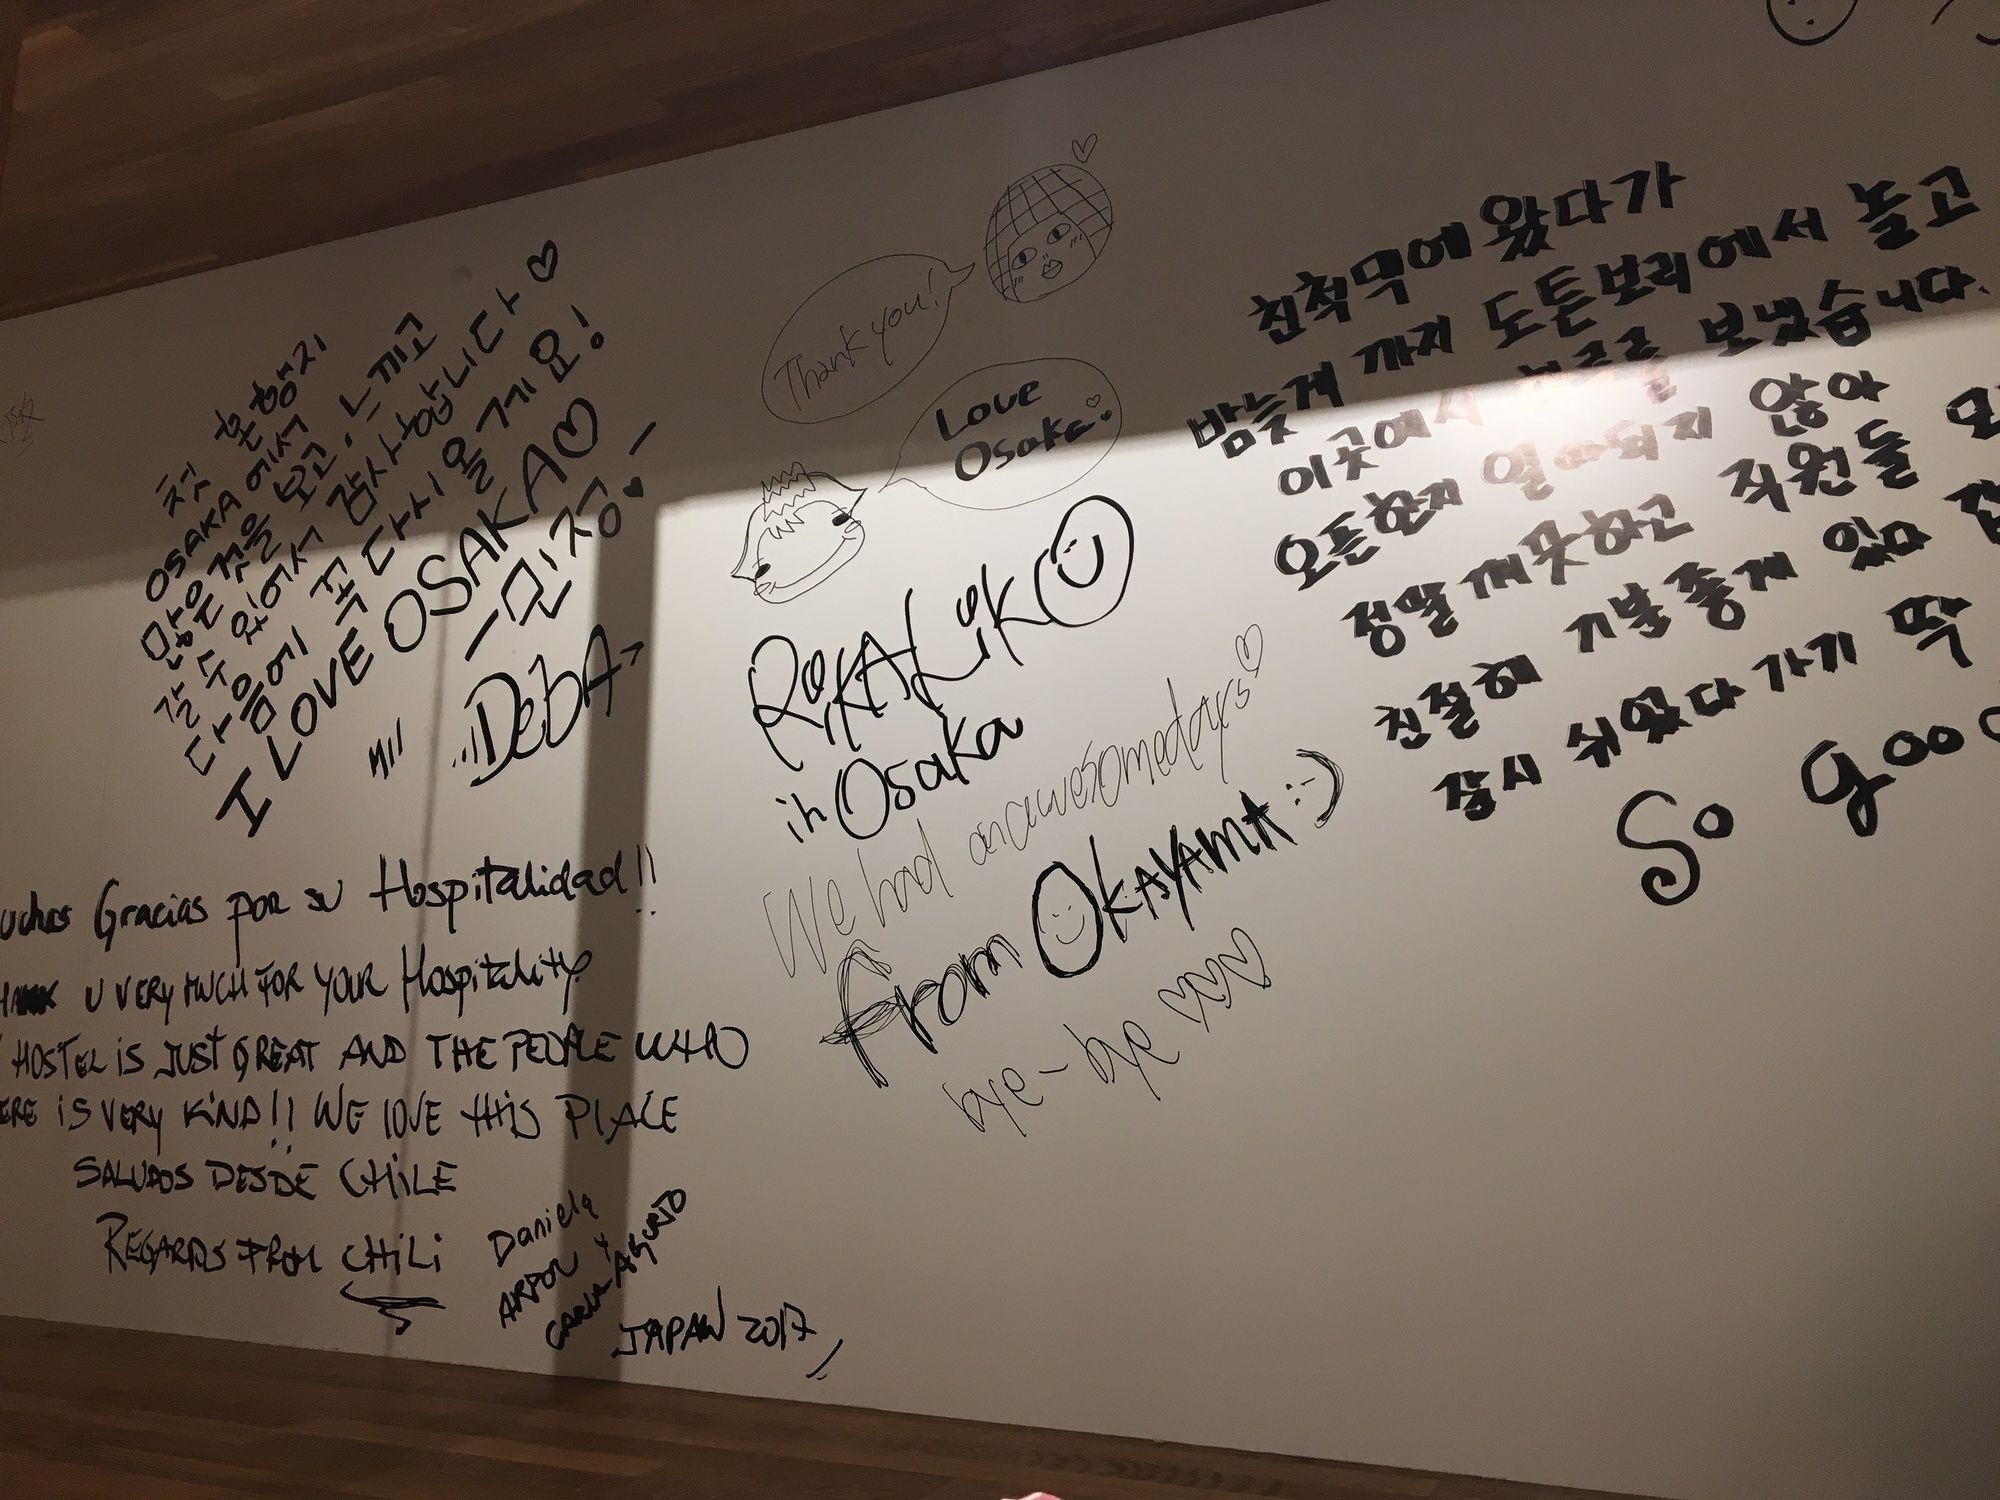 첫 혼행지
OSAKA에서
많은 것을 보고, 느끼고
갈 수 있어서 감사합니다♡
다음에 꼭 다시 올게요!
I LOVE OSAKA♡
-민정-
DEbA
Gracias por su Hospitalidad!!
U VERY MUCH FOR YOUR Hospitality
HOSTEL is JUST GREAT AND THE PEOPLE WHO
is VERY KiND!! WE lOVE tHiS PlACE
SALUDOS DESDE CHiLE
REGARDS FROM CHiLi
Daniela
+
CARLA AGURTO
JAPAN 2017
Thank you!
Love
Osaka
in Osaka
We had an awesome days♡
from OKAYAMA :-)
bye-bye ♡♡♡
친척댁에 왔다가
밤늦게 까지 도톤보리에서 놀고
이곳에서 하루를 보냈습니다.
오픈한지 얼마되지 않아
정말 깨끗하고 직원들
친절해 기분좋게 있다
잠시 쉬었다 가기 딱
So goo